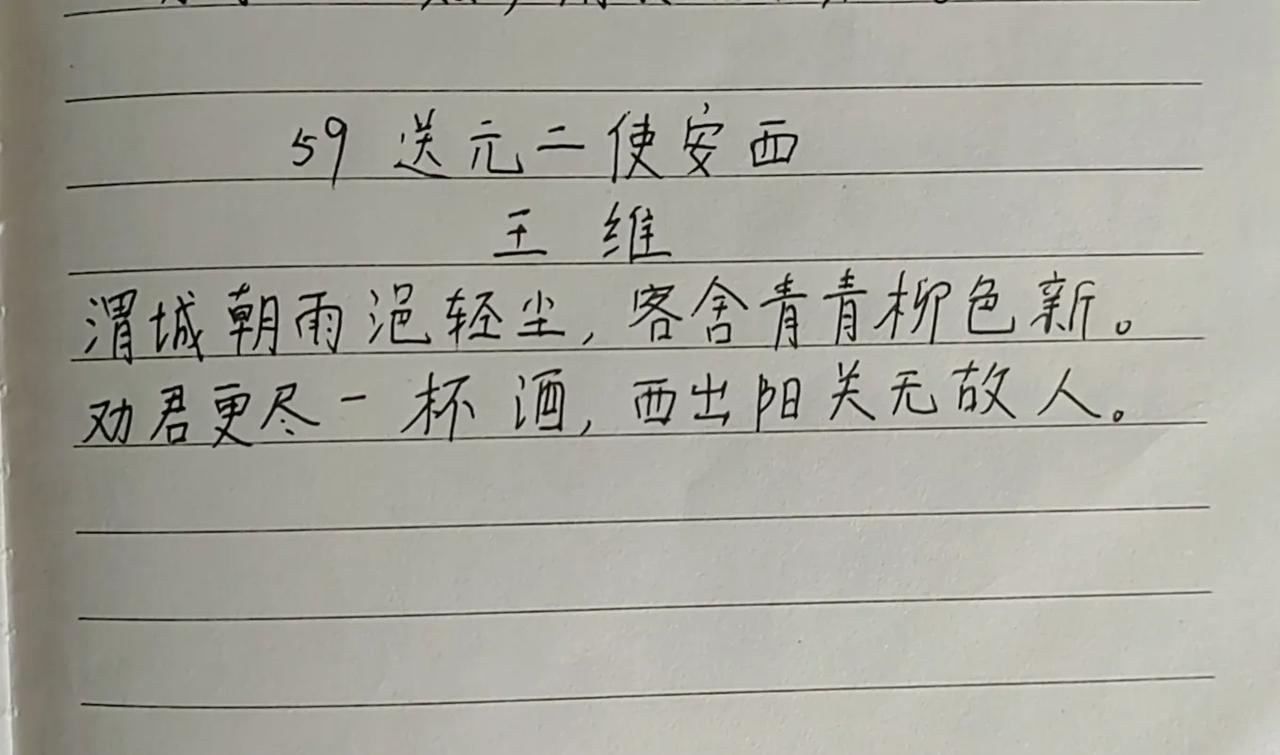 59 送元二使安西
王 维
渭城朝雨浥轻尘，客舍青青柳色新。
劝君更尽一杯酒，西出阳关无故人。